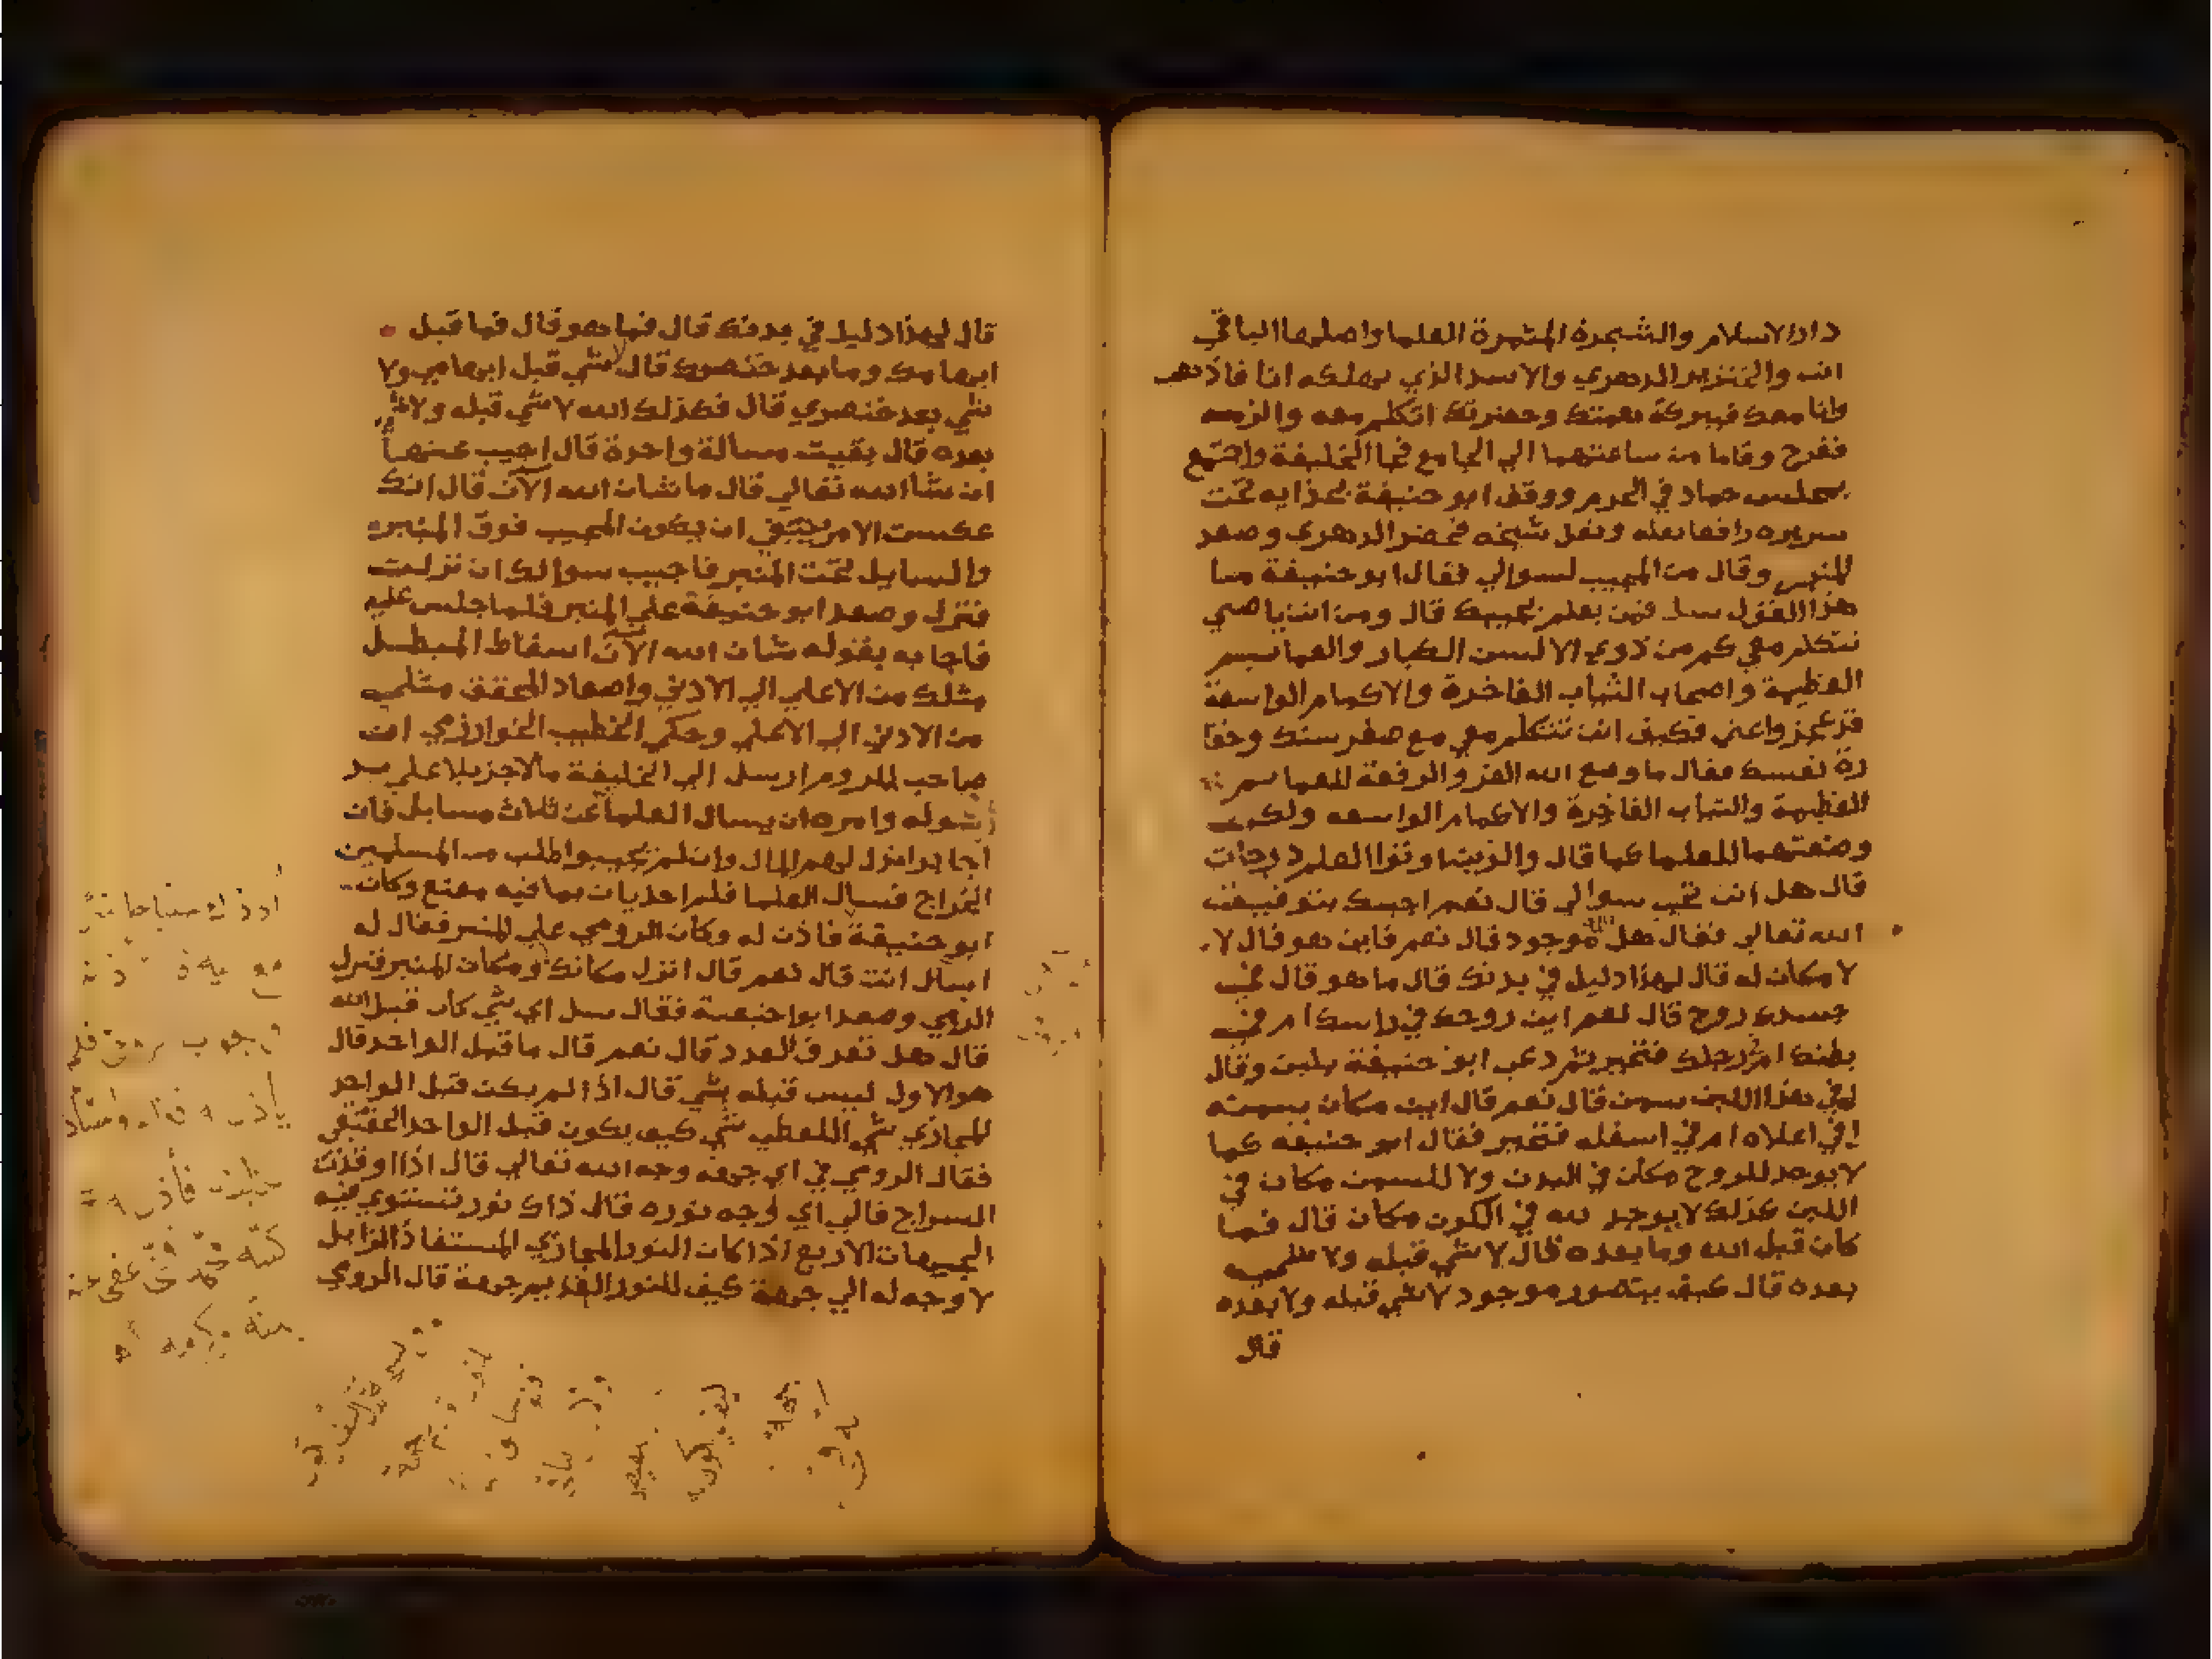 دار الاسلام والشجرة المثمرة العلما واصلها الباقي
انت والخنزير الدهري والاسد الذي يهلكه انا فاذهب
وانا معك فببركة همتك وحضرتك اتكلم معه والزمه
ففرح وقاما من ساعتهما الي الجامع فجا الخليفة واجتمع
مجلس حماد في الحرم ووقف ابو حنيفة بحذايه تحت
سريره رافعا نعله ونعل شيخه فحضر الدهري وصعد
المنبر وقال من المجيب لسوالي فقال ابو حنيفة ما
هذا القول سل فمن يعلم يجيبك قال ومن انت يا صبي
تتكلم معي كم من ذوي الالسن الكبار والعمايم
العظيمة واصحاب الثياب الفاخرة والاكمام الواسعة
قد عجزوا عني فكيف انت تتكلم معي مع صغر سنك وحقا
رة نفسك فقال ما وضع الله العز والرفعة للعمايم
العظيمة والثياب الفاخرة والاكمام الواسعه ولكن
وضعتهما للعلما كما قال والذين اوتوا العلم درجات
قال هل انت تجيب سوالي قال نعم اجيبك بتوفيق
الله تعالي فقال هل الله موجود قال نعم فاين هو قال لا
لا مكان له قال لهذا دليل في بدنك قال ما هو قال في
جسدك روح قال نعم اين روحك في راسك ام في
بطنك ام رجلك فتحير ثم دعي ابو حنيفة بلبن وقال
افي هذا اللبن سمن قال نعم قال اين مكان سمنه
افي اعلاه ام في اسفله فتحير فقال ابو حنيفه كما
لا يوجد للروح مكان في البدن ولا للسمن مكان في
اللبن كذلك لا يوجد لله في الكون مكان قال فما
كان قبل الله وما بعده قال لا شي قبله ولا شي
بعده قال كيف يتصور موجود لا شي قبله ولا بعده
قال
قال لهذا دليل في بدنك قال فما هو قال فما قبل
ابهامك وما بعد خنصرك قال لا شي قبل ابهامي ولا
شي بعد خنصري قال فكذلك الله لا شي قبله ولا شي
بعده قال بقيت مسالة واحدة قال اجيب عنها
ان شا الله تعالي قال ما شان الله الآن قال انك
عكست الامر ينبغي ان يكون المجيب فوق المنبر
والسايل تحت المنبر فاجيب سوالك ان نزلت
فنزل وصعد ابو حنيفة علي المنبر فلما جلس عليه
فاجابه بقوله شان الله الآن اسقاط المبطل
مثلك من الاعلي الي الادني واصعاد المحقق مثلي
من الادني الي الاعلي وحكي الخطيب الخوارزمي ان
صاحب الروم ارسل الي الخليفة مالا جزيلا علي يد
رسوله وامره ان يسال العلما عن ثلاث مسايل فان
اجابوا بذل لهم المال وان لم يجيبوا طلب من المسلمين
الخراج فسال العلما فلم احد يات بما فيه مقنع وكان
ابو حنيفة فاذن له وكان الرومي علي المنبر فقال له
اسايل انت قال نعم قال انزل مكانك ومكان المنبر فنزل
الرومي وصعد ابو حنيفة فقال سل اي شي كان قبل الله
قال هل تعرف العدد قال نعم قال ما قبل الواحد قال
هو الاول ليس قبله شي قال اذا لم يكن قبل الواحد
المجازي شي اللفظي شي كيف يكون قبل الواحد الحقيقي
فقال الرومي في اي جهه وجه الله تعالي قال اذا اوقدت
السراج فالي اي وجه نوره قال ذاك نور تستوي فيه
الجهات الاربع اذا كان النور المجازي المستفاد الزايل
لا وجه له الي جهة كيف للنور القديم جهة قال الرومي